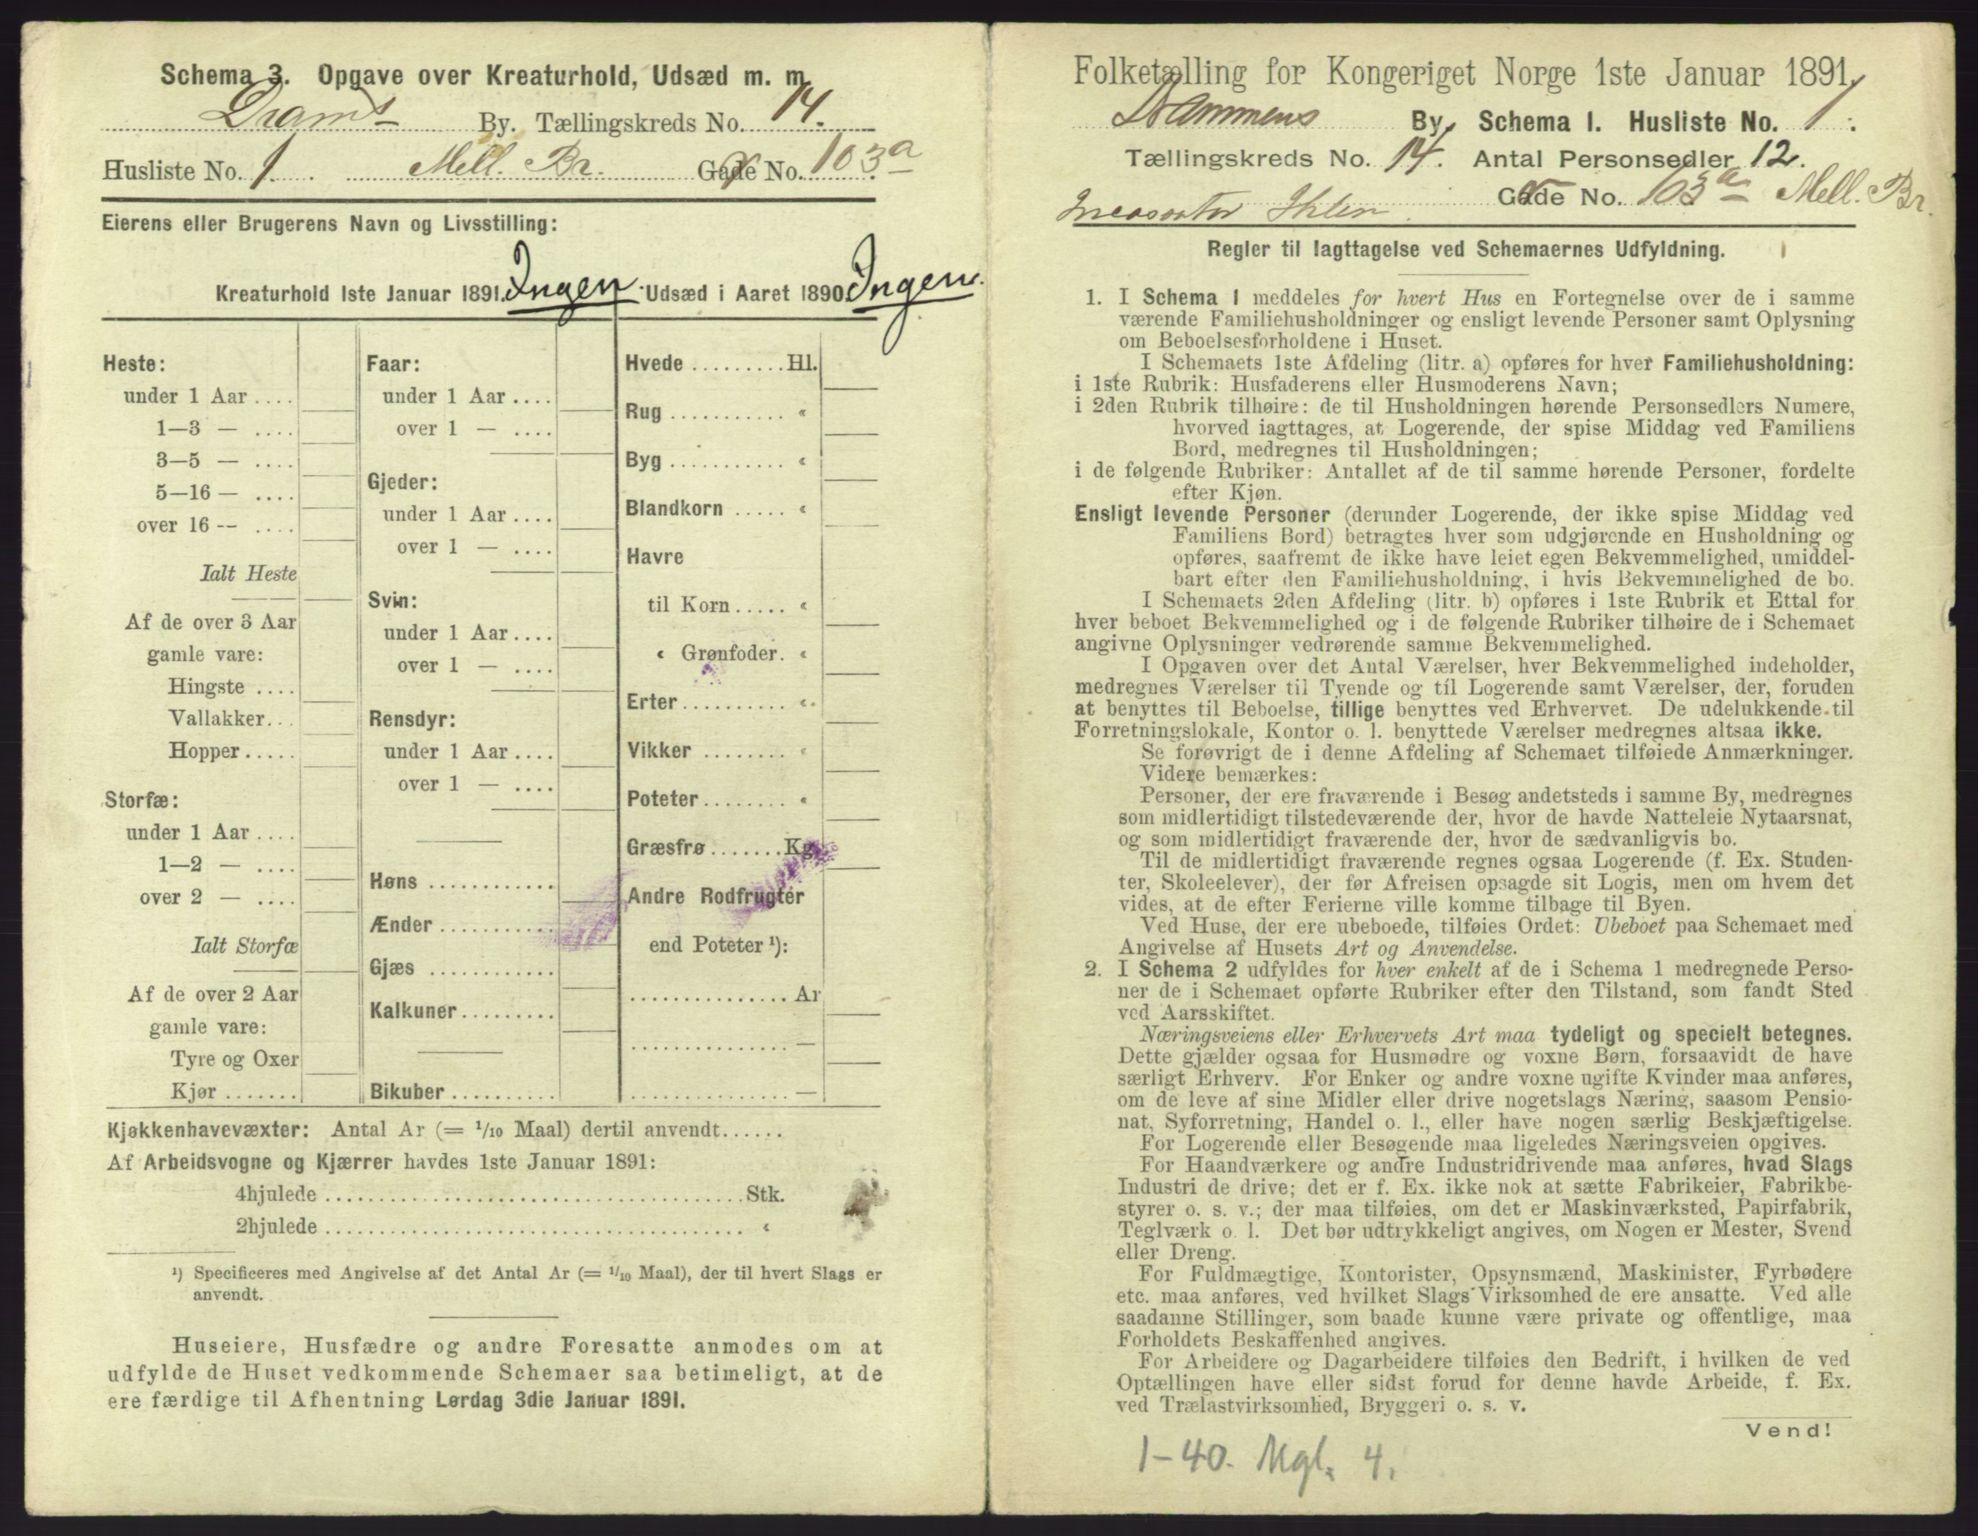 Schema 3. Opgave over Kreaturhold, Udsæd m. m.
Drams By. Tællingskreds No. 14.
Husliste No. 1. Mell. Br. Gade No. 103a
Eierens eller Brugerens Navn og Livsstilling:
Kreaturhold 1ste Januar 1891. Ingen Udsæd i Aaret 1890 Ingen.
Heste:
under 1 Aar ....
1—3 — ....
3—5 — ....
5—16 — ....
over 16 — ....
Ialt Heste
Af de over 3 Aar
gamle vare:
Hingste ....
Vallakker...
Hopper.....
Storfæ:
under 1 Aar ....
1—2 — ....
over 2 — ....
Ialt Storfæ
Af de over 2 Aar
gamle vare:
Tyre og Oxer
Kjør .......
Faar:
under 1 Aar ....
over 1 — ....
Gjeder:
under 1 Aar ....
over 1 — ....
Svin:
under 1 Aar ....
over 1 — ....
Rensdyr:
under 1 Aar ....
over 1 — ....
Høns ............
Ænder ...........
Gjæs ............
Kalkuner.........
Bikuber ..........
Hvede .........Hl.
Rug ........... «
Byg ........... «
Blandkorn ..... «
Havre
til Korn..... «
« Grønfoder. «
Erter.......... «
Vikker ........ «
Poteter........ «
Græsfrø.......Kg.
Andre Rodfrugter
end Poteter ¹):
............... Ar
............... —
............... —
Kjøkkenhavevæxter: Antal Ar (= 1/10 Maal) dertil anvendt......
Af Arbeidsvogne og Kjærrer havdes 1ste Januar 1891:
4hjulede ....................................Stk.
2hjulede .................................... «
¹) Specificeres med Angivelse af det Antal Ar (= 1/10 Maal), der til hvert Slags er
anvendt.
Huseiere, Husfædre og andre Foresatte anmodes om at
udfylde de Huset vedkommende Schemaer saa betimeligt, at de
ere færdige til Afhentning Lørdag 3die Januar 1891.
Folketælling for Kongeriget Norge 1ste Januar 1891.
Drammens By. Schema 1. Husliste No. 1.
Tællingskreds No. 14. Antal Personsedler 12.
Gade No. 103a Mell. Br.
Incasator Ihlen.
Regler til Iagttagelse ved Schemaernes Udfyldning.
1. I Schema 1 meddeles for hvert Hus en Fortegnelse over de i samme
værende Familiehusholdninger og ensligt levende Personer samt Oplysning
om Beboelsesforholdene i Huset.
I Schemaets 1ste Afdeling (litr. a) opføres for hver Familiehusholdning:
i 1ste Rubrik: Husfaderens eller Husmoderens Navn;
i 2den Rubrik tilhøire: de til Husholdningen hørende Personsedlers Numere,
hvorved iagttages, at Logerende, der spise Middag ved Familiens
Bord, medregnes til Husholdningen;
i de følgende Rubriker: Antallet af de til samme hørende Personer, fordelte
efter Kjøn.
Ensligt levende Personer (derunder Logerende, der ikke spise Middag ved
Familiens Bord) betragtes hver som udgjørende en Husholdning og
opføres, saafremt de ikke have leiet egen Bekvemmelighed, umiddel-
bart efter den Familiehusholdning, i hvis Bekvemmelighed de bo.
I Schemaets 2den Afdeling (litr. b) opføres i 1ste Rubrik et Ettal for
hver beboet Bekvemmelighed og i de følgende Rubriker tilhøire de i Schemaet
angivne Oplysninger vedrørende samme Bekvemmelighed.
I Opgaven over det Antal Værelser, hver Bekvemmelighed indeholder,
medregnes Værelser til Tyende og til Logerende samt Værelser, der, foruden
at benyttes til Beboelse, tillige benyttes ved Erhvervet. De udelukkende til
Forretningslokale, Kontor o. l. benyttede Værelser medregnes altsaa ikke.
Se forøvrigt de i denne Afdeling af Schemaet tilføiede Anmærkninger.
Videre bemærkes:
Personer, der ere fraværende i Besøg andetsteds i samme By, medregnes
som midlertidigt tilstedeværende der, hvor de havde Natteleie Nytaarsnat,
og som midlertidigt fraværende der, hvor de sædvanligvis bo.
Til de midlertidigt fraværende regnes ogsaa Logerende (f. Ex. Studen-
ter, Skoleelever), der før Afreisen opsagde sit Logis, men om hvem det
vides, at de efter Ferierne ville komme tilbage til Byen.
Ved Huse, der ere ubeboede, tilføies Ordet: Ubeboet paa Schemaet med
Angivelse af Husets Art og Anvendelse.
2. I Schema 2 udfyldes for hver enkelt af de i Schema 1 medregnede Perso-
ner de i Schemaet opførte Rubriker efter den Tilstand, som fandt Sted
ved Aarsskiftet.
Næringsveiens eller Erhvervets Art maa tydeligt og specielt betegnes.
Dette gjælder ogsaa for Husmødre og voxne Børn, forsaavidt de have
særligt Erhverv. For Enker og andre voxne ugifte Kvinder maa anføres,
om de leve af sine Midler eller drive nogetslags Næring, saasom Pensio-
nat, Syforretning, Handel o. l., eller have nogen særlig Beskjæftigelse.
For Logerende eller Besøgende maa ligeledes Næringsveien opgives.
For Haandværkere og andre Industridrivende maa anføres, hvad Slags
Industri de drive; det er f. Ex. ikke nok at sætte Fabrikeier, Fabrikbe-
styrer o. s. v.; der maa tilføies, om det er Maskinværksted, Papirfabrik,
Teglværk o. l. Det bør udtrykkeligt angives, om Nogen er Mester, Svend
eller Dreng.
For Fuldmægtige, Kontorister, Opsynsmænd, Maskinister, Fyrbødere
etc. maa anføres, ved hvilket Slags Virksomhed de ere ansatte. Ved alle
saadanne Stillinger, som baade kunne være private og offentlige, maa
Forholdets Beskaffenhed angives.
For Arbeidere og Dagarbeidere tilføies den Bedrift, i hvilken de ved
Optællingen have eller sidst forud for denne havde Arbeide, f. Ex.
ved Trælastvirksomhed, Bryggeri o. s. v.
Vend!
1-40. Mgl. 4.